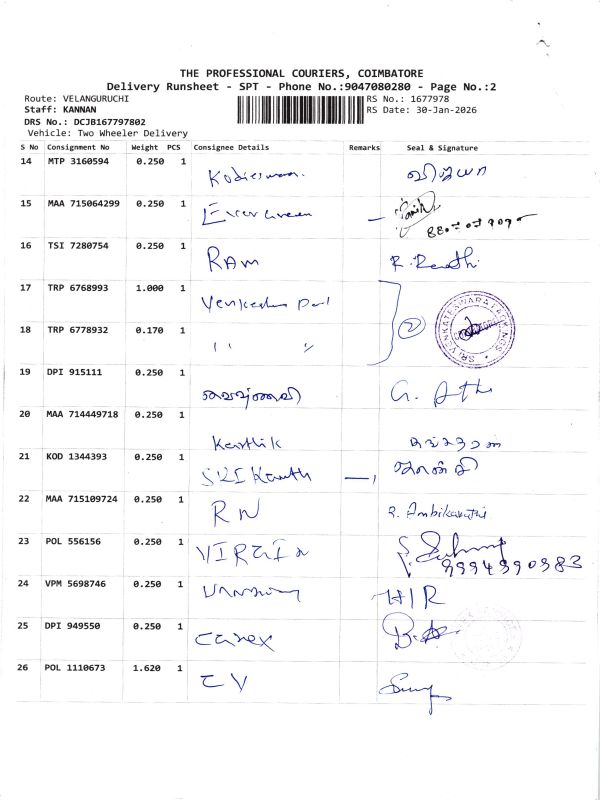 THE PROFESSIONAL COURIERS, COIMBATORE
Delivery Runsheet - SPT - Phone No.:9047080280 - Page No.:2
Route: VELANGURUCHI
RS No.: 1677978
Staff: KANNAN
RS Date: 30-Jan-2026
DRS No.: DCJB167797802
Vehicle: Two Wheeler Delivery
S No Consignment No Weight PCS Consignee Details Remarks Seal & Signature
14 MTP 3160594 0.250 1
15 MAA 715064299 0.250 1 Evergreen
16 TSI 7280754 0.250 1 RAM R. Revathi
17 TRP 6768993 1.000 1
18 TRP 6778932 0.170 1 " "
2
SRI VENKATESWARA PACKINGS
19 DPI 915111 0.250 1
20 MAA 714449718 0.250 1 Karthik
21 KOD 1344393 0.250 1 SRI Kanth
22 MAA 715109724 0.250 1 RN R. Ambikavathi
23 POL 556156 0.250 1 9994390383
24 VPM 5698746 0.250 1 HIR
25 DPI 949550 0.250 1 Carex
26 POL 1110673 1.620 1 CV